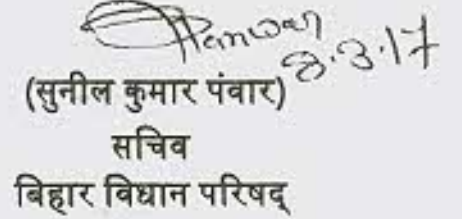 Panwar
8.3.17
(सुनील कुमार पंवार)
सचिव
बिहार विधान परिषद्